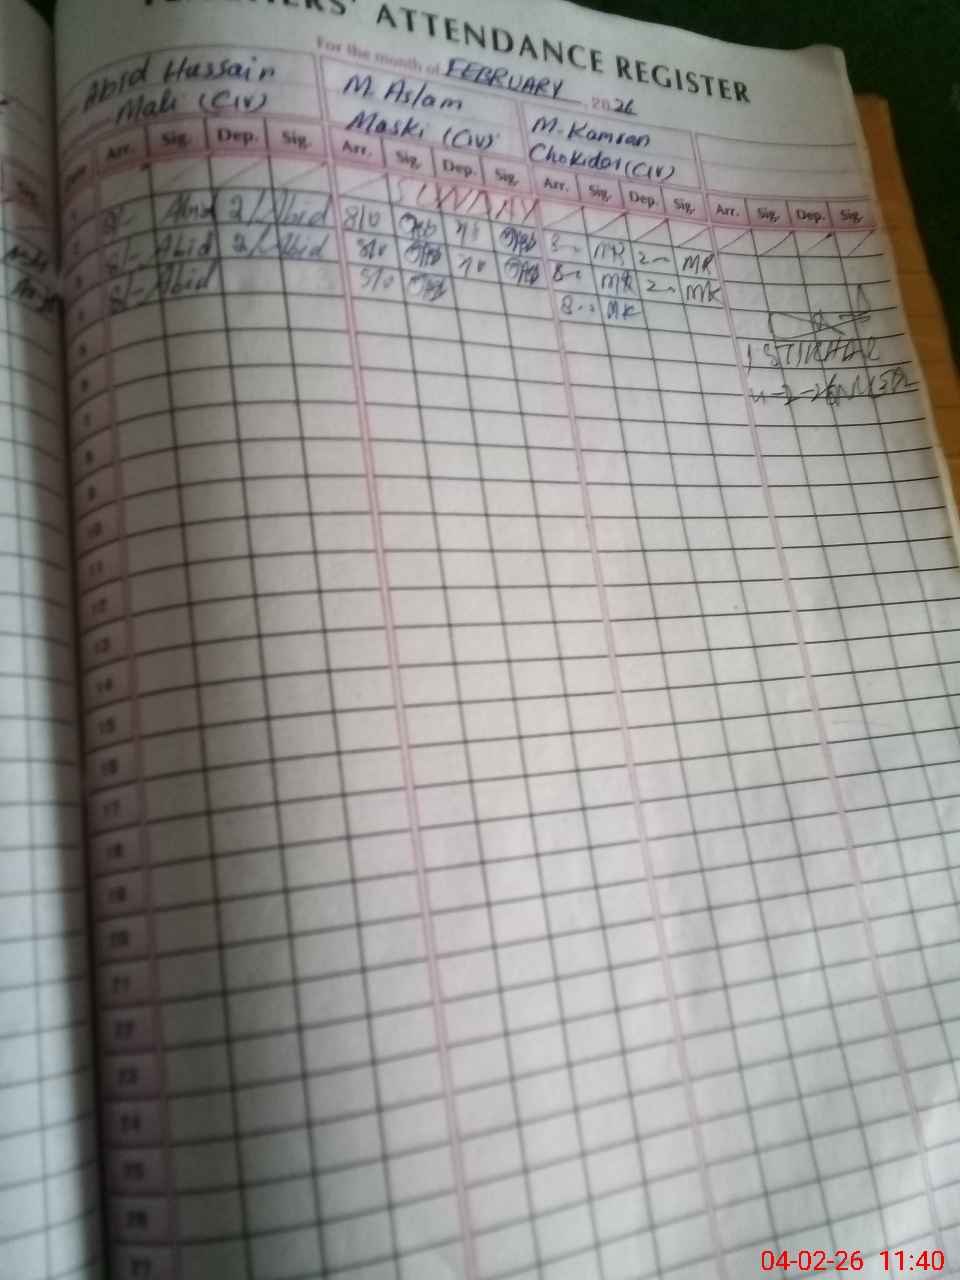 TEACHERS' ATTENDANCE REGISTER
For the month of FEBRUARY 2026
Abid Hussain
Mali (Civ)
M. Aslam
Maski (Civ)
M. Kamran
Chokidar (Civ)
Arr. Sig. Dep. Sig. Arr. Sig. Dep. Sig. Arr. Sig. Dep. Sig. Arr. Sig. Dep. Sig.
1 SUNDAY
2 8/- Abid 2/- Abid 8/0 8- MK 2- MK
3 8/- Abid 2/- Abid 8/0 8- MK 2- MK
4 8/- Abid 8/0 8- MK
5
6
7
8
9
10
11
12
13
14
15
16
17
18
19
20
21
22
23
24
25
26
27
04-02-26 11:40